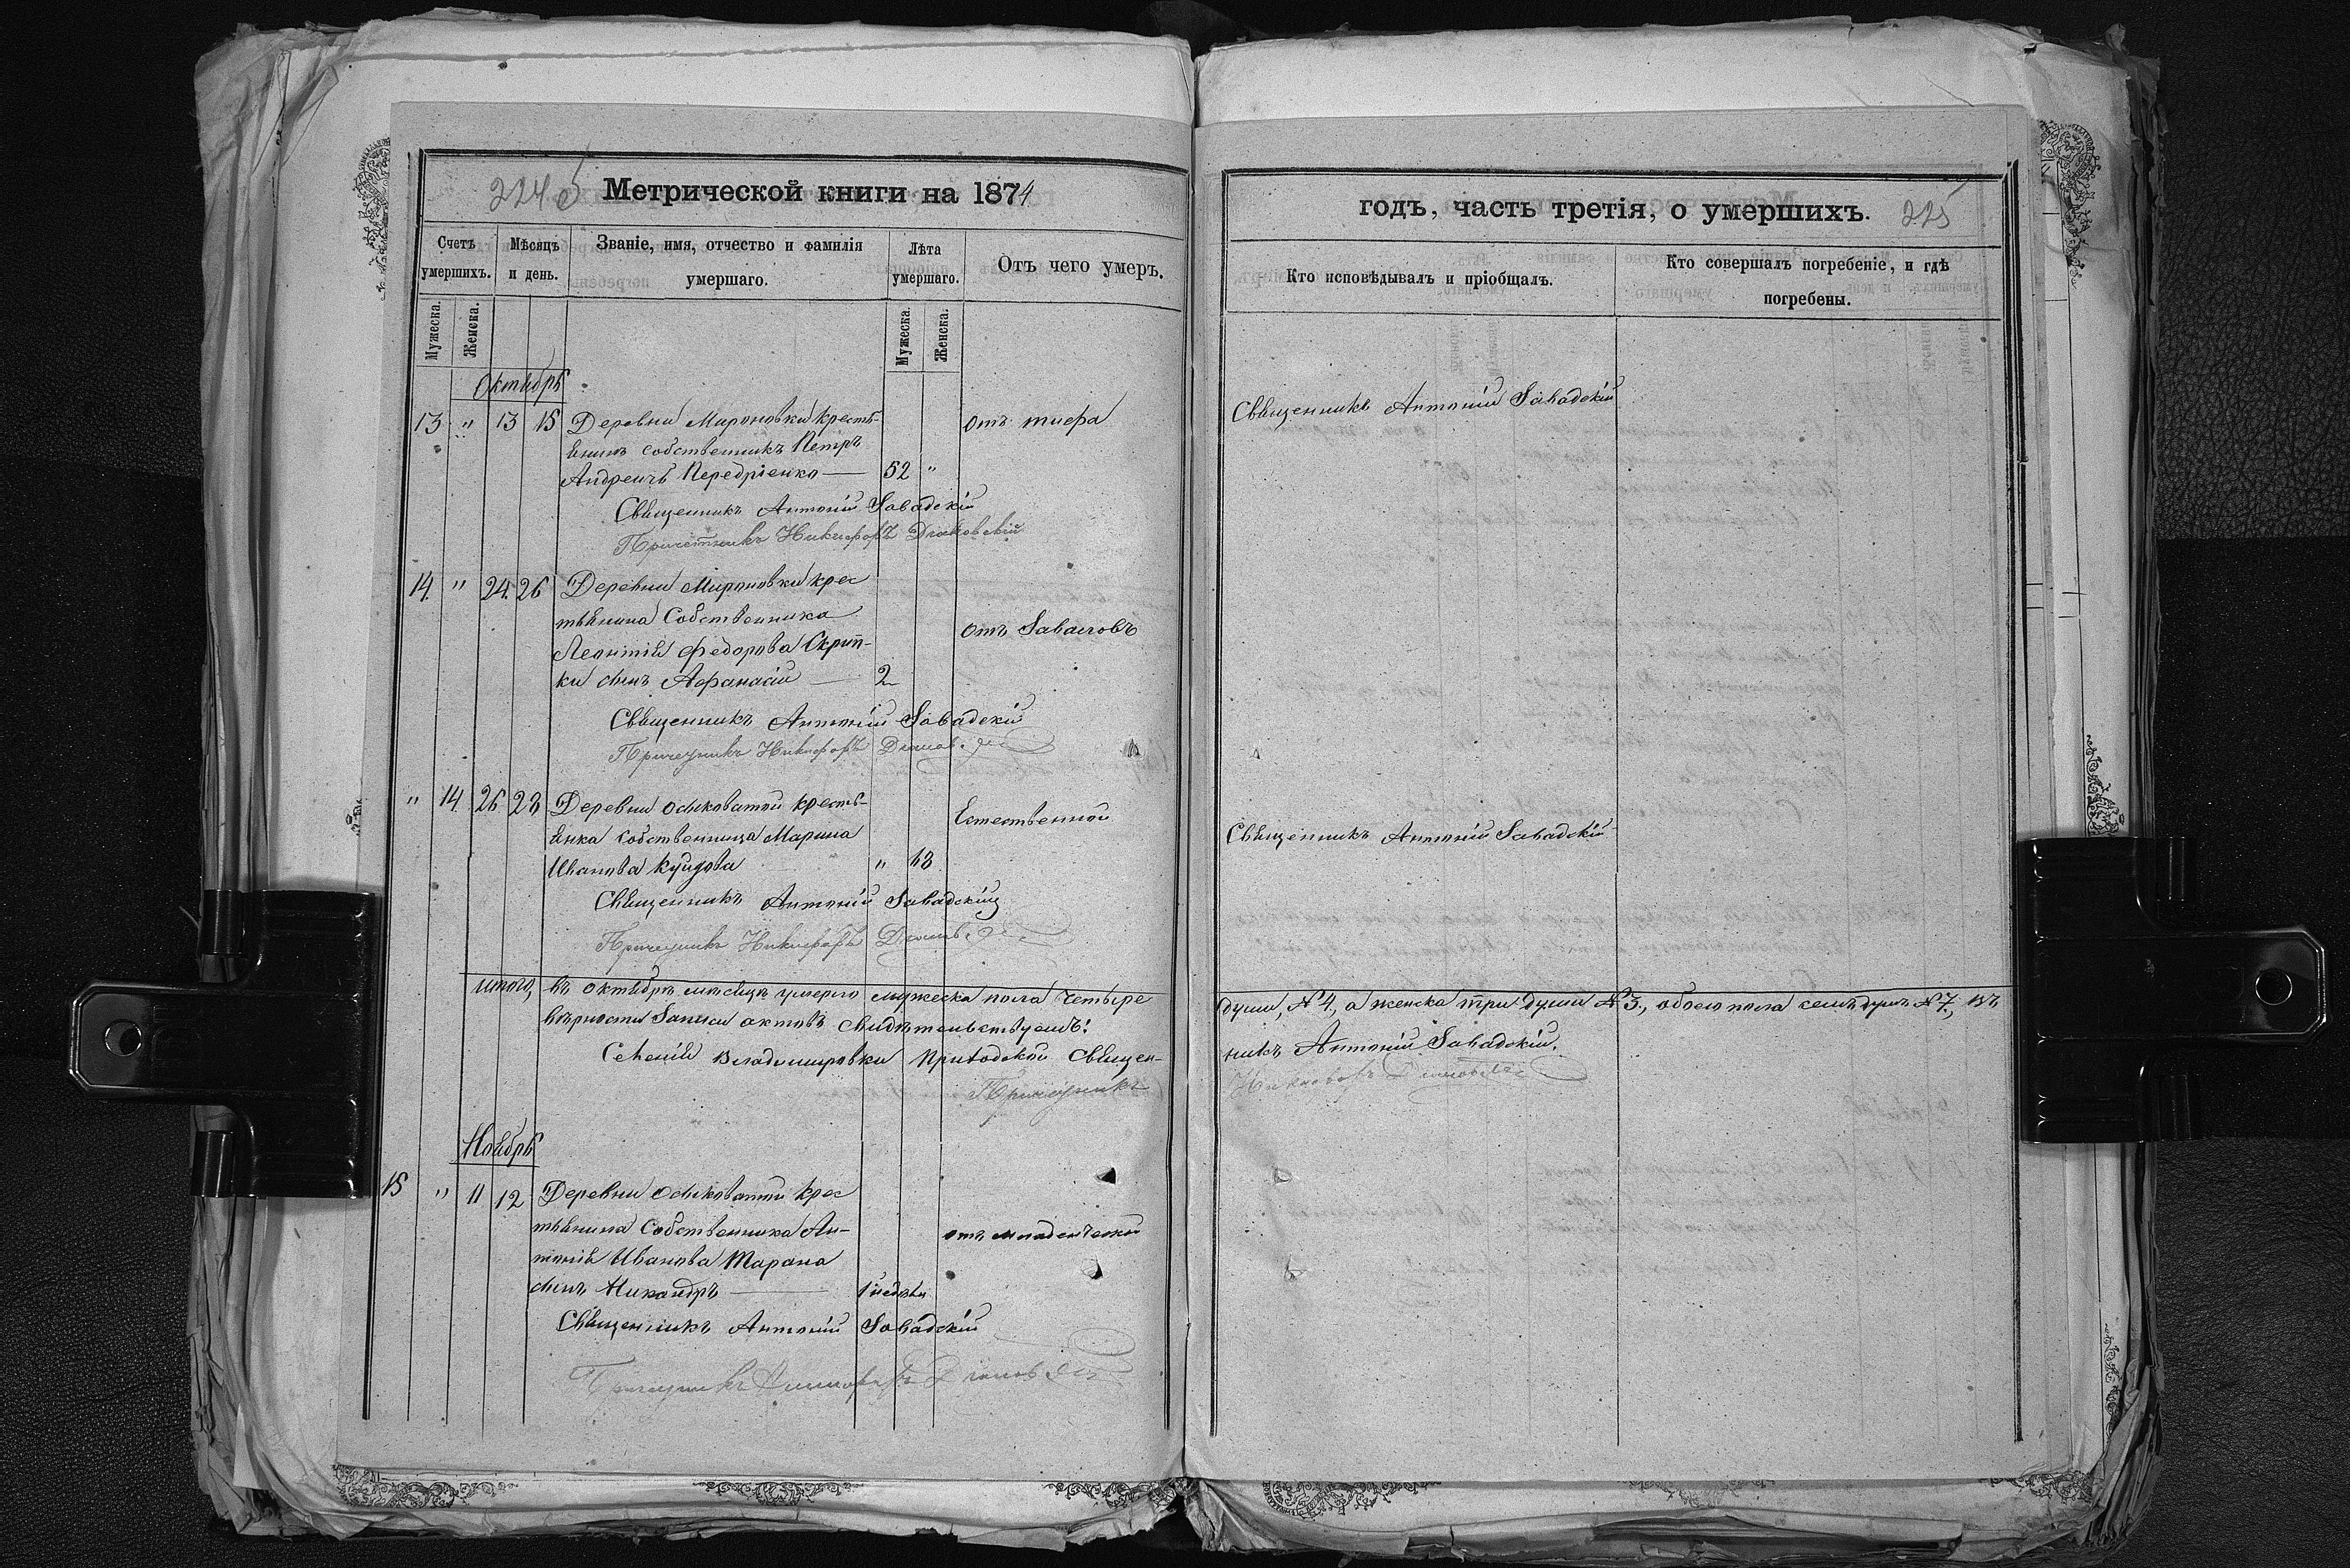 224 об Метрической книги на 1874
Счетъ умершихъ.
Мѣсяцъ и день.
Званіе, имя, отчество и фамилія умершаго.
Лѣта умершаго.
Отъ чего умеръ.
Мужеска.
Женска.
Мужеска.
Женска.
Октябрь
13 " 13 15 Деревни Мироновки кресть- отъ тифа
янинъ собственникъ Петръ
Андреичъ Передріенко — 52 "
Священникъ Антоній Завадскій
Причетникъ Никифоръ
14. " 24. 26 Деревни Мироновки крес
тьянина Собственника
Леонтія Федорова Скрип- отъ
ки сынъ Афанасій — 2
Священникъ Антоній Завадскій
Причетникъ Никифоръ
" 14 26 28 Деревни Осиковатой кресть- Естественной
янка собственница Марина
Иванова " 68
Священникъ Антоній Завадскій
Причетникъ Никифоръ
Итого, въ октябрѣ мѣсяцѣ умерло мужеска пола четыре
вѣрности записи актовъ свидѣтельствуемъ:
Селенія Владимировки Приходской Священ-
Причетникъ
Ноябрь
15 " 11 12 Деревни Осиковатой крес
тьянина Собственника Ан- отъ младенческой
тонія Иванова Тарана
сынъ Никандръ — 1 недѣли
Священникъ Антоній Завадскій
Причетникъ Никифоръ
годъ, часть третія, о умершихъ. 225
Кто исповѣдывалъ и пріобщалъ.
Кто совершалъ погребеніе, и гдѣ погребены.
Священникъ Антоній Завадскій
Священникъ Антоній Завадскій
души, №4, а женска три души №3, обоего пола семь душъ №7, въ
никъ Антоній Завадскій.
Никифоръ